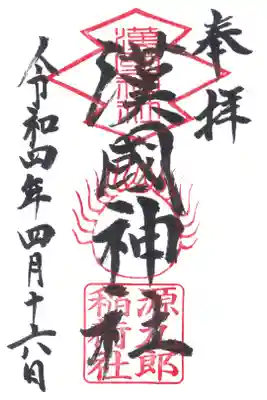 奉拝
漢國神社
源九郎
稲荷社
令和四年四月十六日